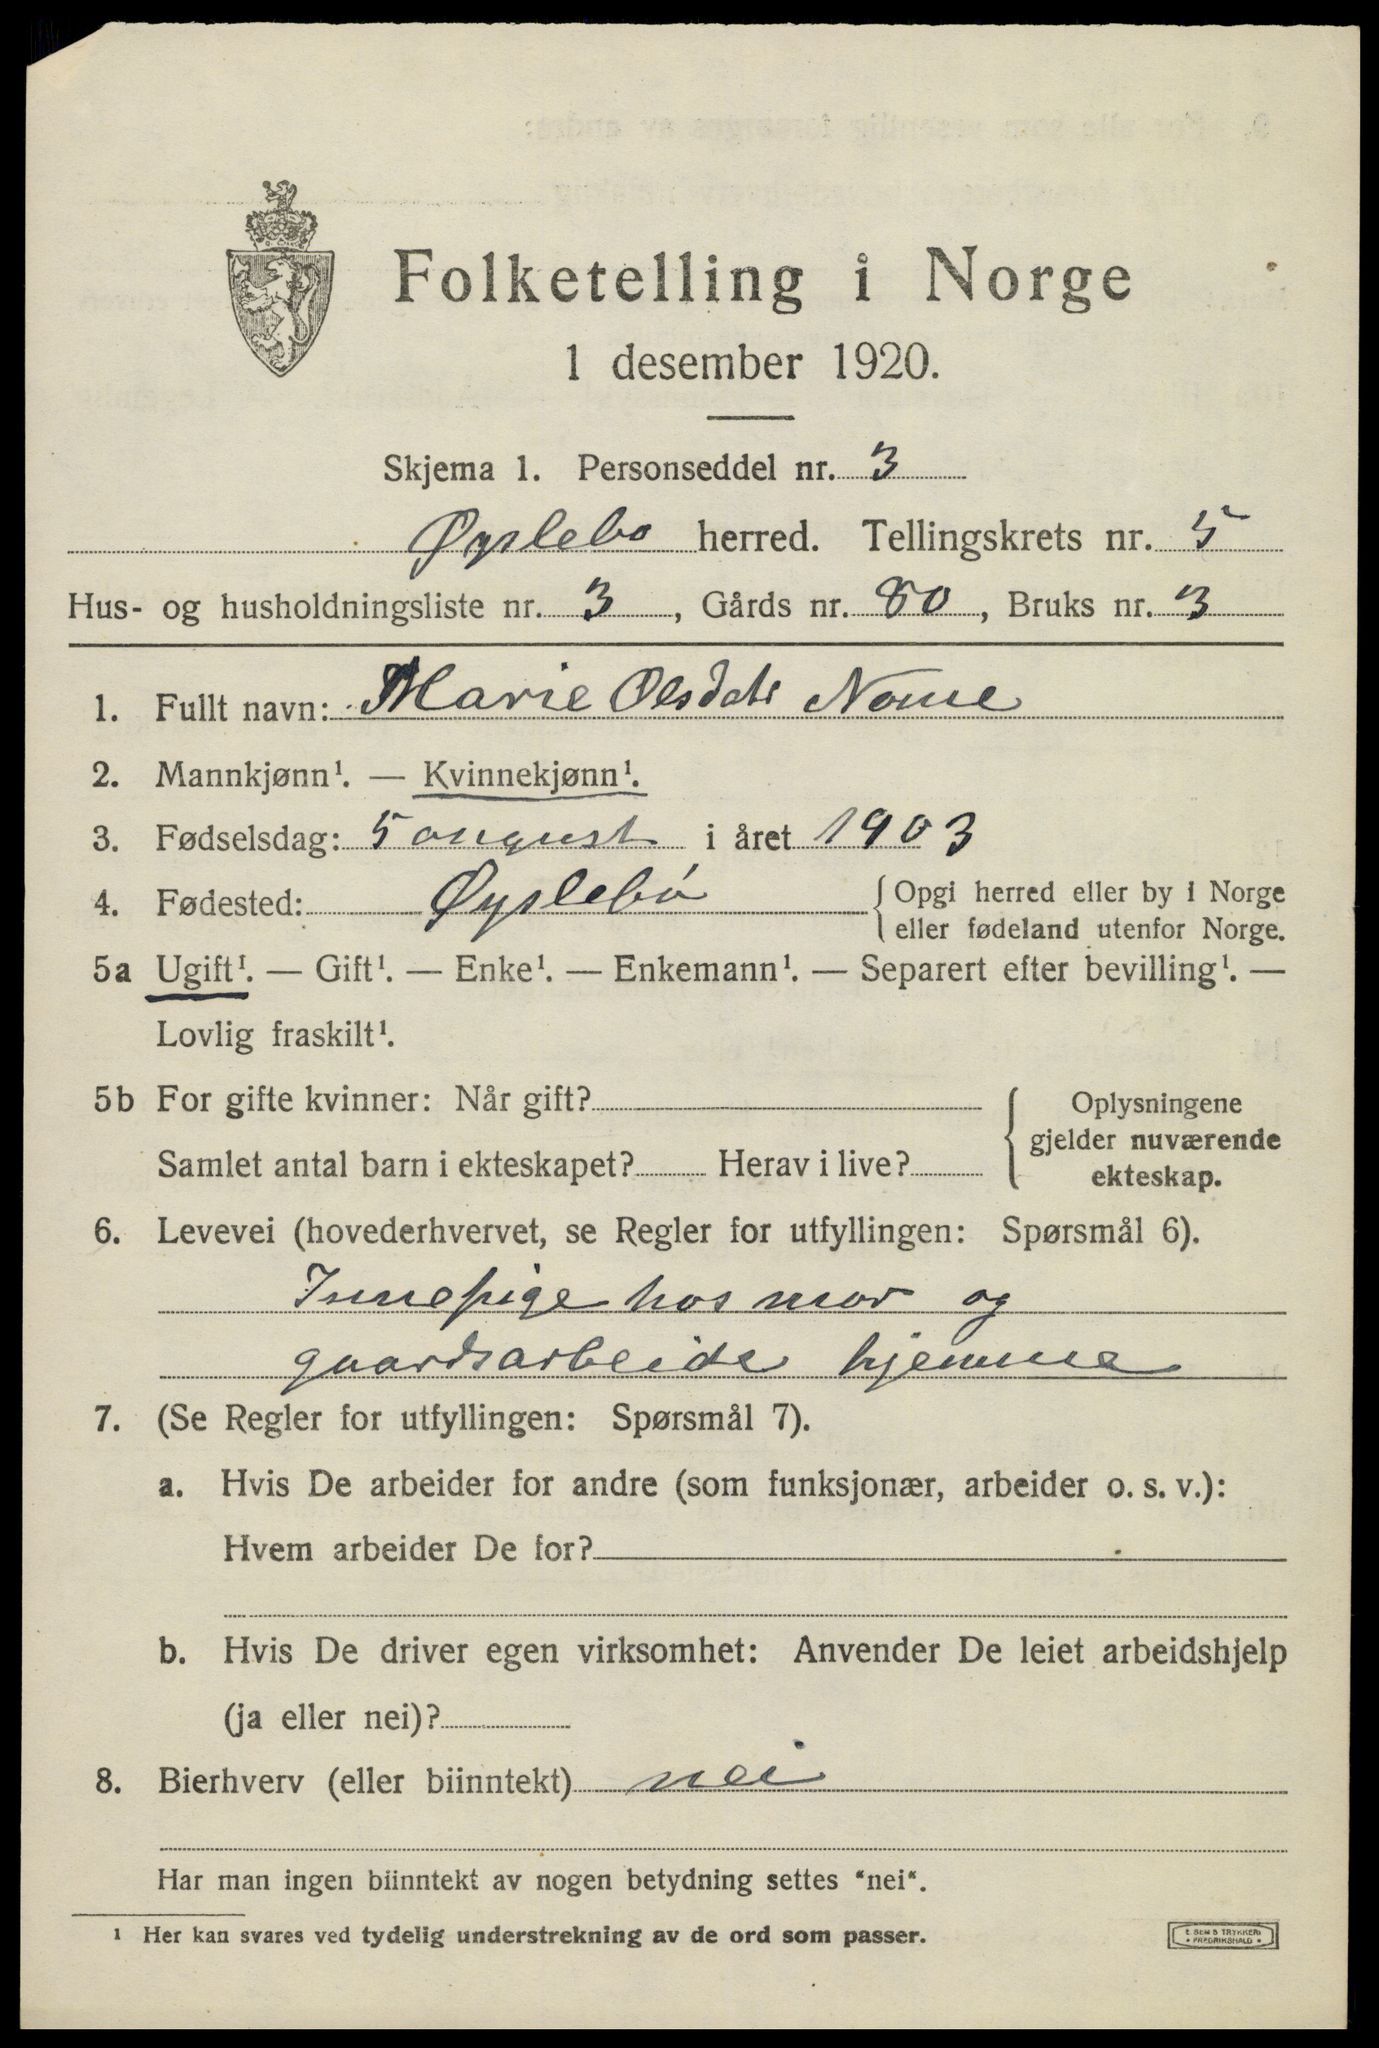 Folketelling i Norge
1 desember 1920.
Skjema 1. Personseddel nr. 3
Øyslebo herred. Tellingskrets nr. 5
Hus- og husholdningsliste nr. 3, Gårds nr. 80, Bruks nr. 3
1. Fullt navn: Marie Olsdatr Nome
2. Mannkjønn¹. — Kvinnekjønn¹.
3. Fødselsdag: 5 august i året 1903
4. Fødested: Øyslebø { Opgi herred eller by i Norge
eller fødeland utenfor Norge.
5a Ugift¹. — Gift¹. — Enke¹. — Enkemann¹. — Separert efter bevilling¹. —
Lovlig fraskilt¹.
5b For gifte kvinner: Når gift?
Samlet antal barn i ekteskapet? Herav i live?
Oplysningene
gjelder nuværende
ekteskap.
6. Levevei (hovederhvervet, se Regler for utfyllingen: Spørsmål 6).
Innepige hos mor og
gaardsarbeide hjemme
7. (Se Regler for utfyllingen: Spørsmål 7).
a. Hvis De arbeider for andre (som funksjonær, arbeider o. s. v.):
Hvem arbeider De for?
b. Hvis De driver egen virksomhet: Anvender De leiet arbeidshjelp
(ja eller nei)?
8. Bierhverv (eller biinntekt) nei
Har man ingen biinntekt av nogen betydning settes "nei".
¹ Her kan svares ved tydelig understrekning av de ord som passer.
E. SEM'S TRYKKERI
• FREDRIKSHALD •